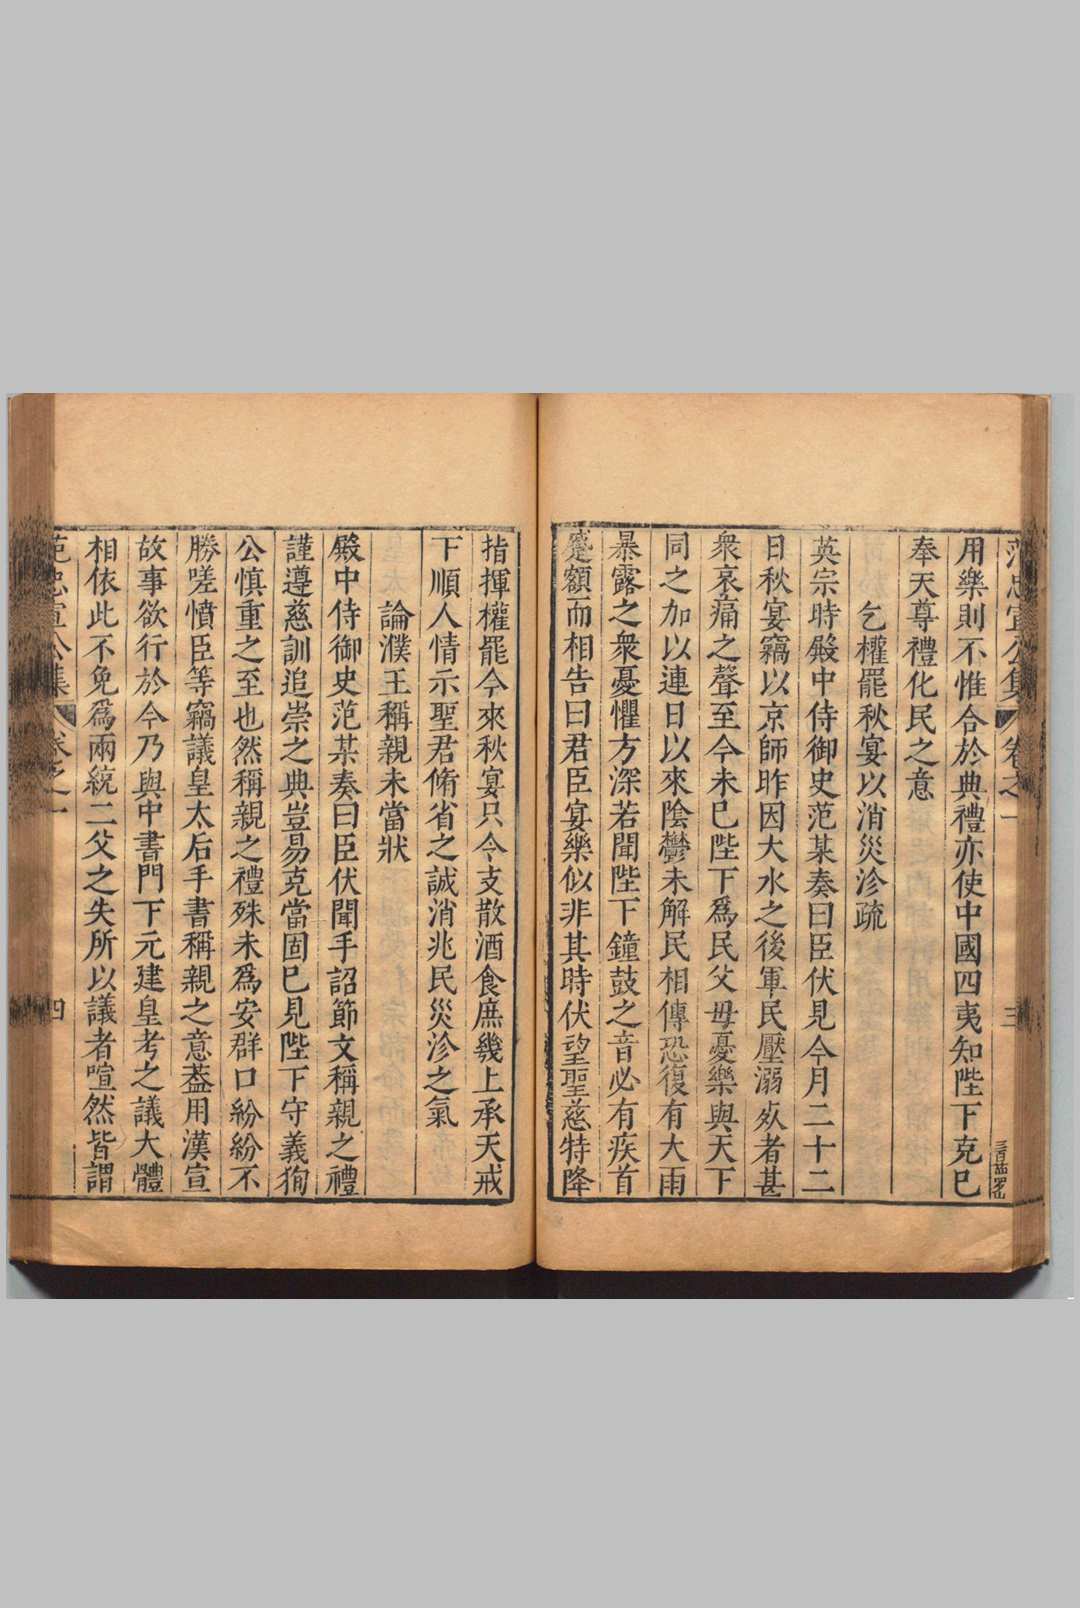 范忠宣公集 卷之一 三
用樂則不惟合於典禮亦使中國四夷知陛下克己
奉天尊禮化民之意
乞權罷秋宴以消災沴疏
英宗時殿中侍御史范某奏曰臣伏見今月二十二
日秋宴竊以京師昨因大水之後軍民壓溺死者甚
衆哀痛之聲至今未已陛下爲民父母憂樂與天下
同之加以連日以來陰鬱未解民相傳恐復有大雨
暴露之衆憂懼方深若聞陛下鐘鼓之音必有疾首
蹙額而相告曰君臣宴樂似非其時伏望聖慈特降
指揮權罷今來秋宴只令支散酒食庶幾上承天戒
下順人情示聖君脩省之誠消兆民災沴之氣
論濮王稱親未當狀
殿中侍御史范某奏曰臣伏聞手詔節文稱親之禮
謹遵慈訓追崇之典豈易克當固已見陛下守義狥
公慎重之至也然稱親之禮殊未爲安群口紛紛不
勝嗟憤臣等竊議皇太后手書稱親之意葢用漢宣
故事欲行於今乃與中書門下元建皇考之議大體
相依此不免爲兩統二父之失所以議者喧然皆謂
范忠宣公集 卷之一 四